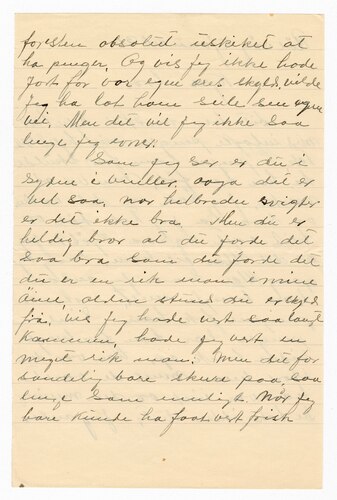 foresten absolut uskiket at
ha penger. Og vis jeg ikke hade
jort for vor egen æres skyld, vilde
jeg ha lat ham seile sin egen
vei. Men det vil jeg ikke saa
lenge jeg lever.
Som jeg ser er du i
i vinller, ogsa det er
vel saa, nor helbreden svigter
er det ikke bra. Men du er
heldig bror at du forde det
saa bra som du forde det
du er en rik man i mine
öine, alden stund du er gjeld
fri. Vis jeg hade vert saa langt
kommen, hade jeg vert en
meget rik man. Men det for
sandelig bare skure paa, saa
lenge som muligt. Når jeg
bare kunde ha faat vert frisk